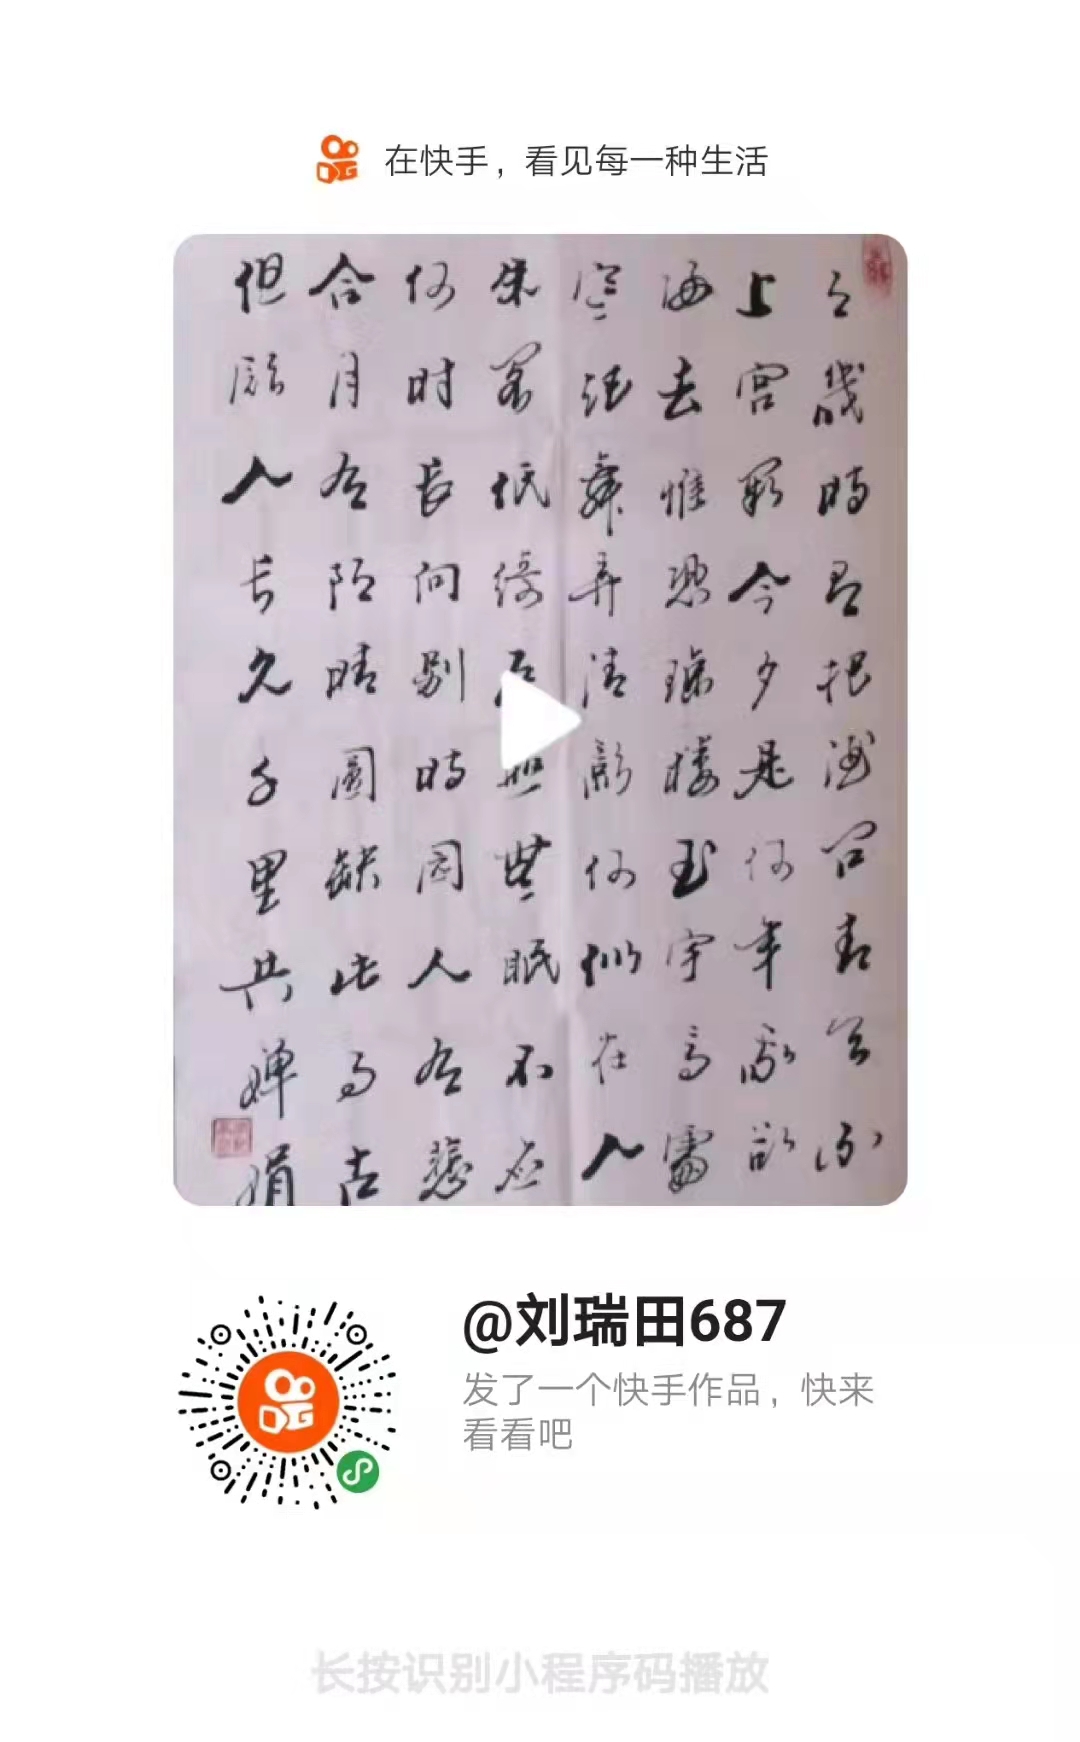 在快手，看见每一种生活
月幾時有把酒问青天不
上宫阙今夕是何年我欲
归去惟恐瓊樓玉宇高處
寒起舞弄清影何似在人
朱阁低绮户無眠不应
何时長向别時圆人有悲
合月有阴晴圆缺此事古
但願人长久千里共嬋娟
@刘瑞田687
发了一个快手作品，快来
看看吧
长按识别小程序码播放